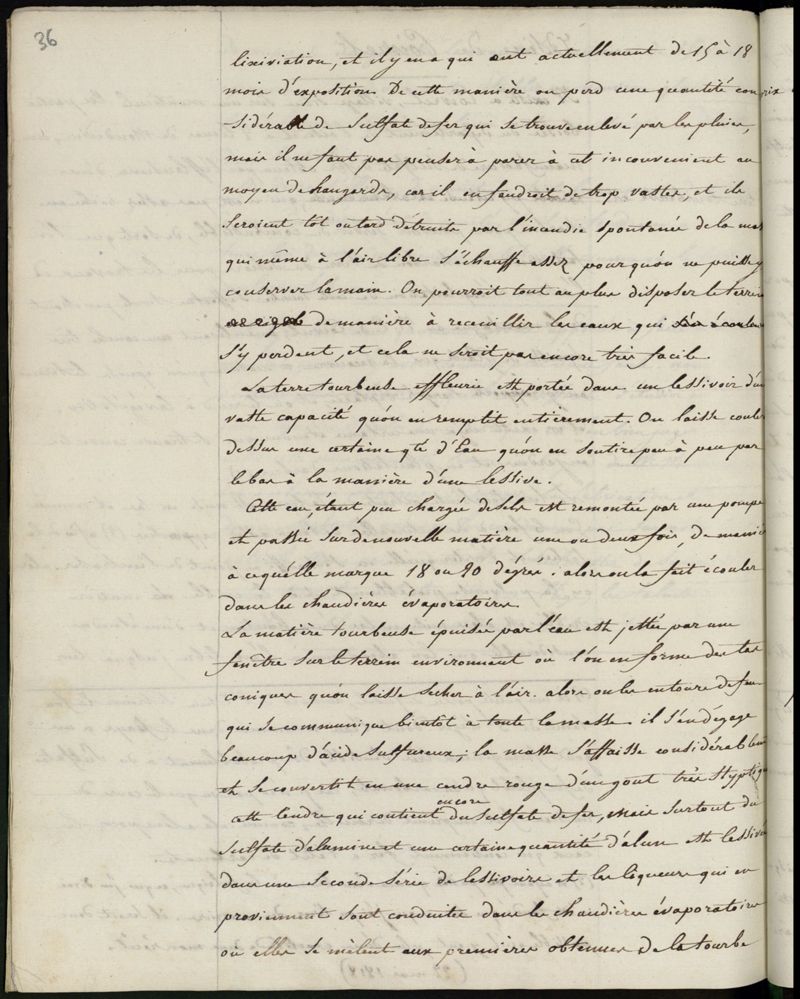 36
lixiviation, et il y en a qui ont actuellement de 15 à 18
mois d'exposition De cette manière on perd une quantité con
-sidérable de Sulfate de fer qui se trouve enlevé par les pluies,
mais il ne faut pas penser à parer à cet inconvenient au
moyen de hangards, car il en faudroit de trop vastes, et ils
seroient tôt ou tard détruits par l'incendie spontanée de la mas
qui même à l'air libre s'échauffe assez pour qu'on ne puisse y
conserver la main. On pourroit tout au plus disposer le terrein
de manière à receuillir les eaux qui
s'y perdent, et cela ne seroit pas encore très facile.
La terre tourbeuse effleurie est portée dans un lessivoir d'une
vaste capacité qu'on en remplit entièrement. On laisse couler
dessus une certaine qté d'Eau qu'on en soutire peu à peu par
le bas à la manière d'une lessive.
Cette eau, étant peu chargée de sels est remontée par une pompe
et passée sur de nouvelle matière une ou deux fois, de manié
à ce qu'elle marque 18 ou 20 dégrés. alors on la fait écouler
dans les chaudières évaporatoires
La matière tourbeuse épuisée par l'eau est jettée par une
fenêtre sur le terrein environnant où l'on en forme des tas
coniques qu'on laisse secher à l'air. alors on les entoure de feu
qui se communique bientôt à toute la masse. il s'en dégage
beaucoup d'acide sulfureux; la masse s'affaisse considérablemt
et se convertit en une cendre rouge d'un gout très styptique
encore
cette Cendre qui contient du sulfate de fer, mais surtout du
sulfate d'alumine et une certaine quantité d'alun est lessivée
dans une seconde série de lessivoirs et les liqueurs qui en
proviennent sont conduites dans les chaudières évaporatoires
où elles se mèlent aux premières obtenues de la tourbe